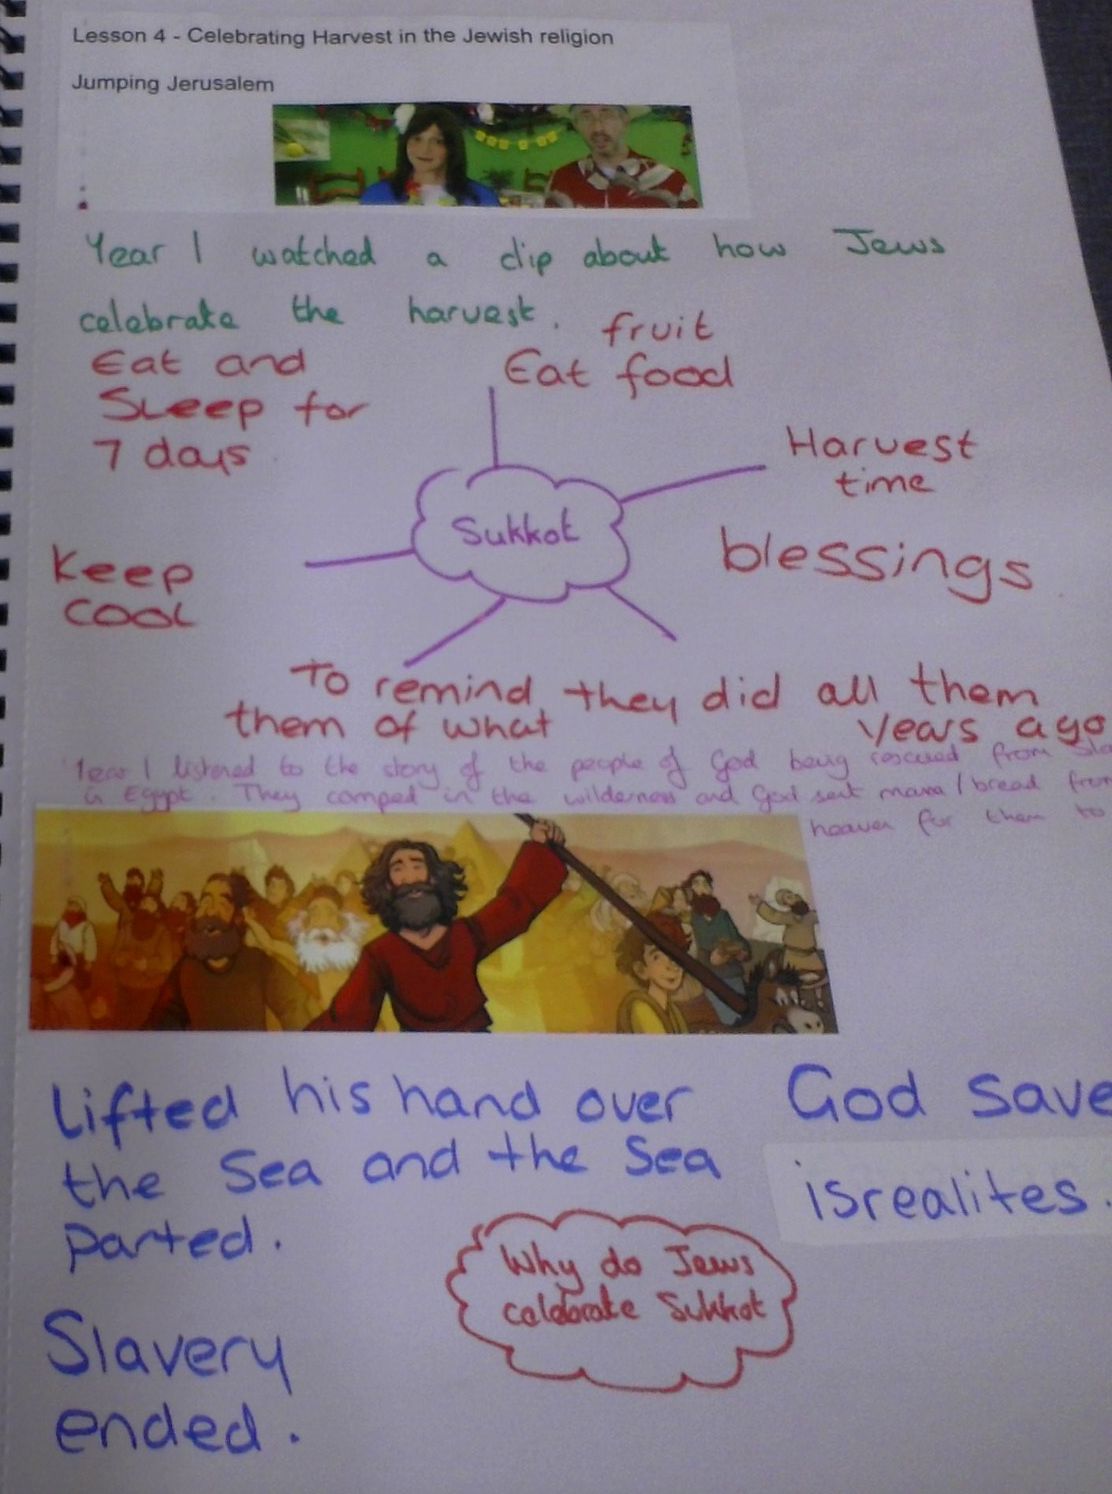 Lesson 4 - Celebrating Harvest in the Jewish religion
Jumping Jerusalem
Year 1 watched a clip about how Jews
celebrate the harvest.
Eat and
Sleep for
7 days
fruit
Eat food
Harvest
time
Sukkot
Keep
cool
blessings
To remind they did all them
them of what years ago
Year 1 listened to the story of the people of God being rescued from
in Egypt. They camped in the wilderness and God sent mana / bread from
heaven for them to
lifted his hand over
the Sea and the Sea
parted.
God save
isrealites.
Why do Jews
celebrate Sukkot
Slavery
ended.